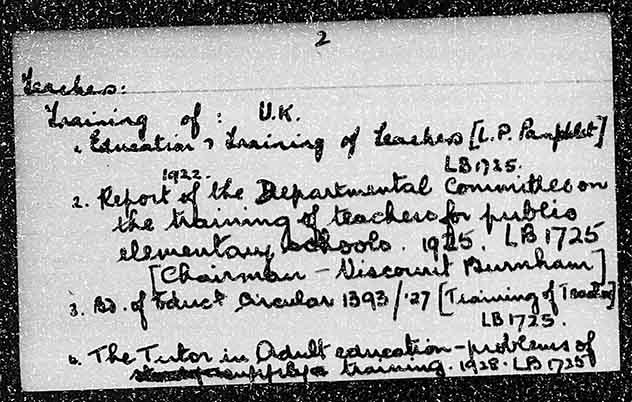 2
Teachers:
Training of : U.K.
1. Education & Training of Teachers [L.P. Pamphlet]
1922. LB1725.
2. Report of the Departmental Committee on
the training of teachers for public
elementary schools. 1925. LB1725
[Chairman - Viscount Burnham]
3. Bd. of Educt Circular 1393/'27 [Training of Teachers]
LB1725.
4. The Tutor in Adult education - problems of
supply & training. 1928. LB1725